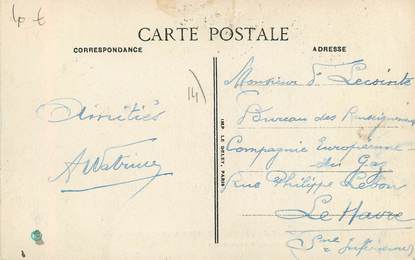 4 €
CARTE POSTALE
CORRESPONDANCE
ADRESSE
14)
Amitiés
IMP. LE DELEY, PARIS
Monsieur Lecointe
Bureau des
Compagnie Européenne
du Gaz
Rue Philippe Lebon
Le Havre
(Sne Inférieure)